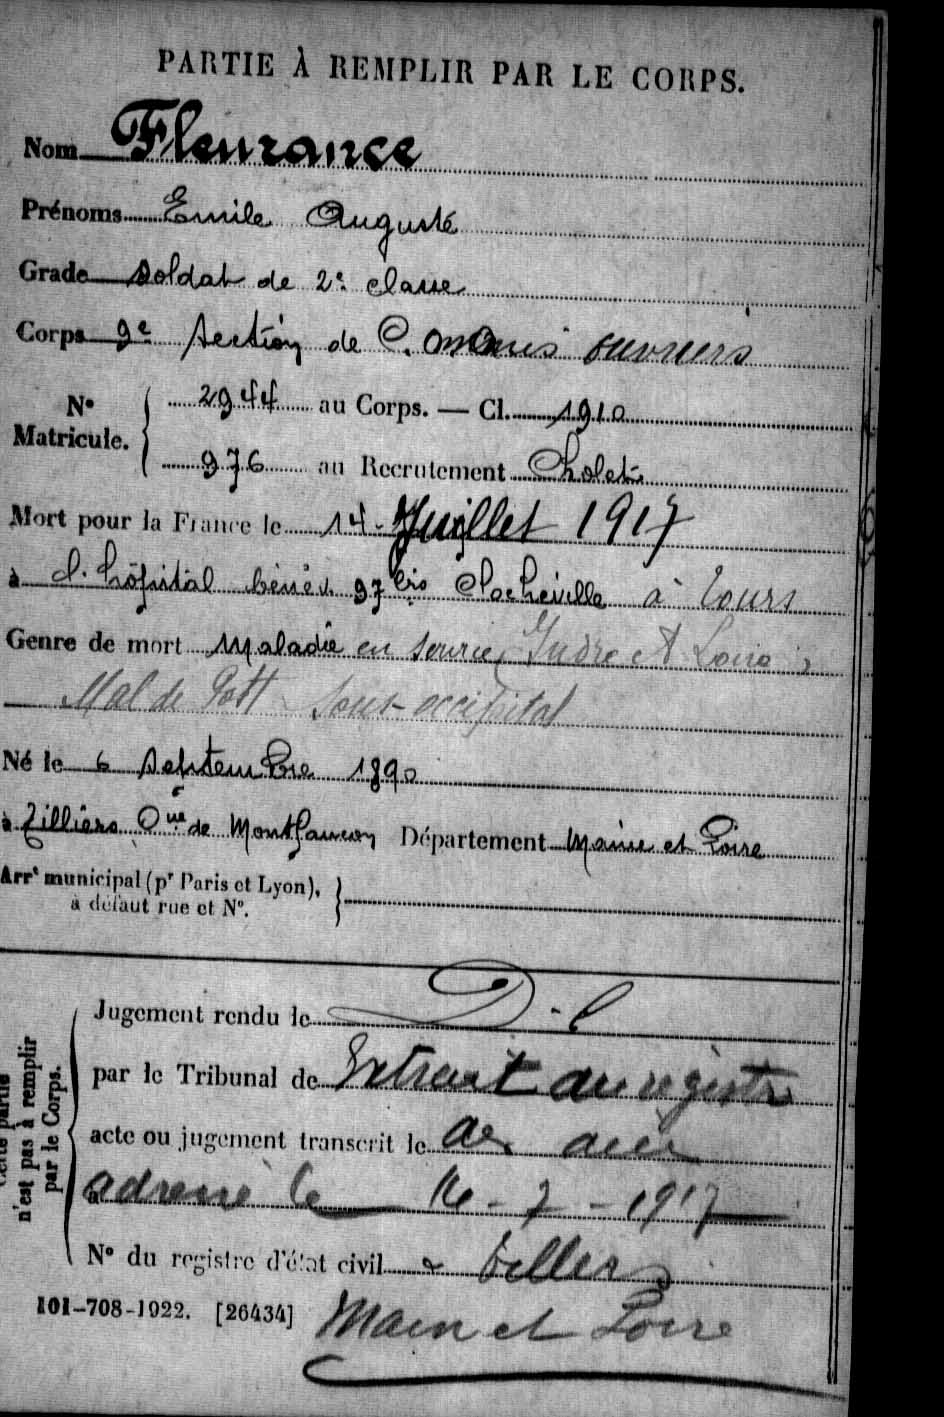 PARTIE À REMPLIR PAR LE CORPS.
Nom Fleurance
Prénoms Emile Auguste
Grade soldat de 2e classe
Corps 9e Section de C. omis ouvriers
No Matricule. 2944 au Corps. — Cl. 1910
976 au Recrutement Cholet
Mort pour la France le 14 Juillet 1917
à l'hôpital bénév. 97 bis Clocheville à Tours
Genre de mort Maladie en service Indre et Loire
Mal de Pott Sous-occipital
Né le 6 Septembre 1890
à Tilliers Cne de Montfaucon Département Maine et Loire
Arrt municipal (pr Paris et Lyon), à défaut rue et No.
Cette partie n'est pas à remplir par le Corps.
Jugement rendu le D.C
par le Tribunal de Extrait du registre
acte ou jugement transcrit le
à adressé le 16-7-1917
No du registre d'état civil à Tillers
101-708-1922. [26434] Main et Loire